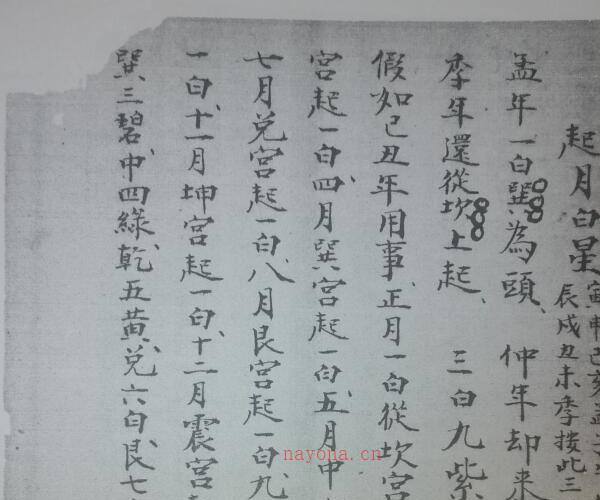 起月白星
寅申巳亥孟子
辰戌丑未季按此三
孟年一白巽為頭　仲年却来
季年還從坎上起　三白九紫
假如己丑年用事正月一白從坎宮
宮起一白四月巽宮起一白五月中
七月兌宮起一白八月艮宮起一白九
一白十一月坤宮起一白十二月震宮
巽三碧中四綠乾五黃兌六白艮七
nayona.cn